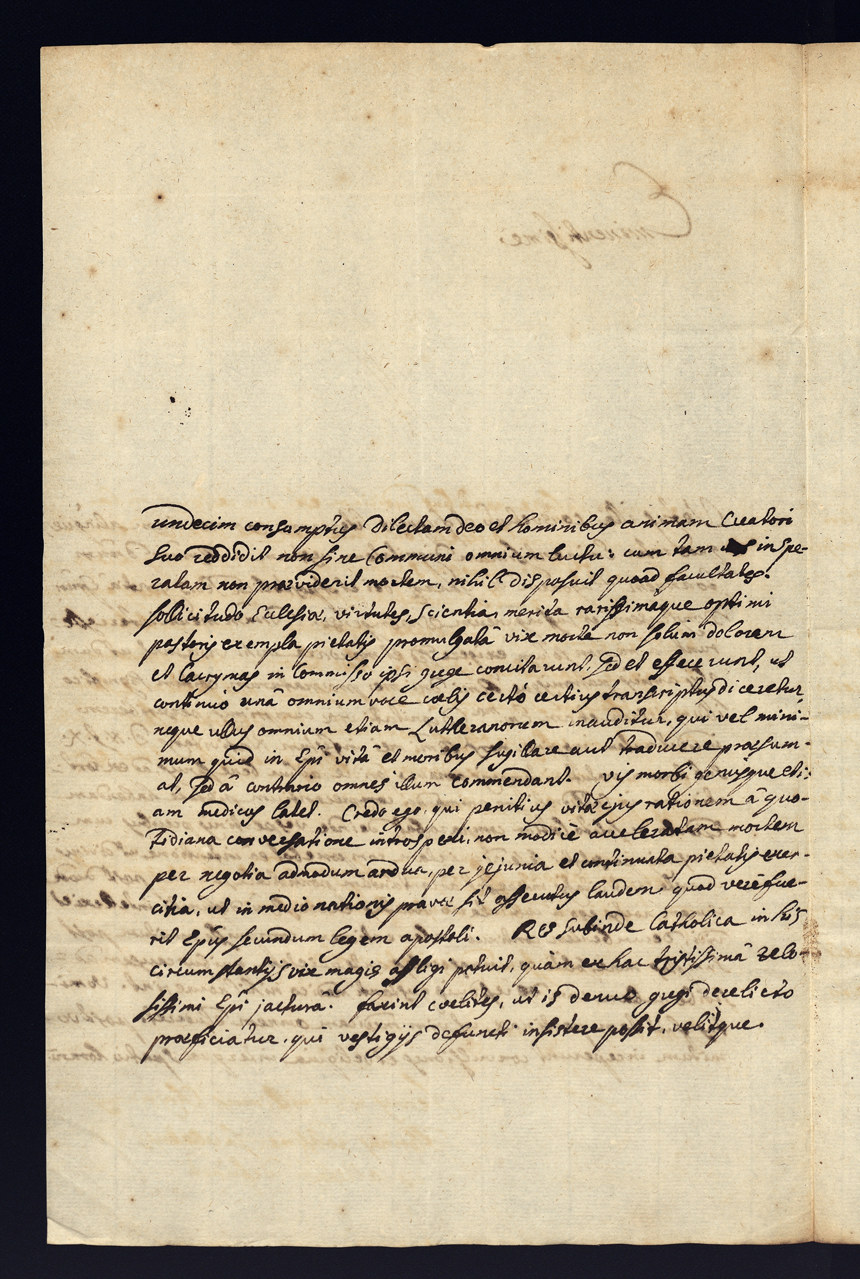 undecim consumptus dilectam deo et hominibus animam Creatori
suo reddidit non sine Communi omnium luctu: cum tam inspe-
ratam non praeviderit mortem, nihil disposuit quoad facultates.
sollicitudo Eclesiæ, virtutes, scientia, merita rarissimaque optimi
pastoris exempla pietatis promulgatâ vix morte non solùm dolorem
et lacrymas in Commisso ipsi grege concitarunt, sed et effecerunt, ut
continuò unâ omnium voce cœlis certò certius transcriptus diceretur,
neque ullus omnium etiam Lutheranorum inauditur, qui vel mini-
mum quid in Epi vitâ et moribus sugillare aut traducere præsum-
at, sed â contrario omnes illum commendant. vis morbi genusque eti-
am medicos latet. Credo ego, qui penitius vitæ ejus rationem â quo-
tidiana conversatione introspexi, non modicè acceleratam mortem
per negotia admodum ardua, per jejunia et continuata pietatis exer-
citia, ut in medio nationis pravæ sit assecutus laudem quod verè fue-
rit Epus secundum legem apostoli. Res subinde Catholica in his
circumstantijs vix magis affligi potuit, quàm ex hac tristissimâ zelo-
sissimi Epi jacturâ. faxint cœlites, ut is denuo gregi derelicto
præficiatur, qui vestigijs defuncti insistere possit, velitque.
Eminentissime